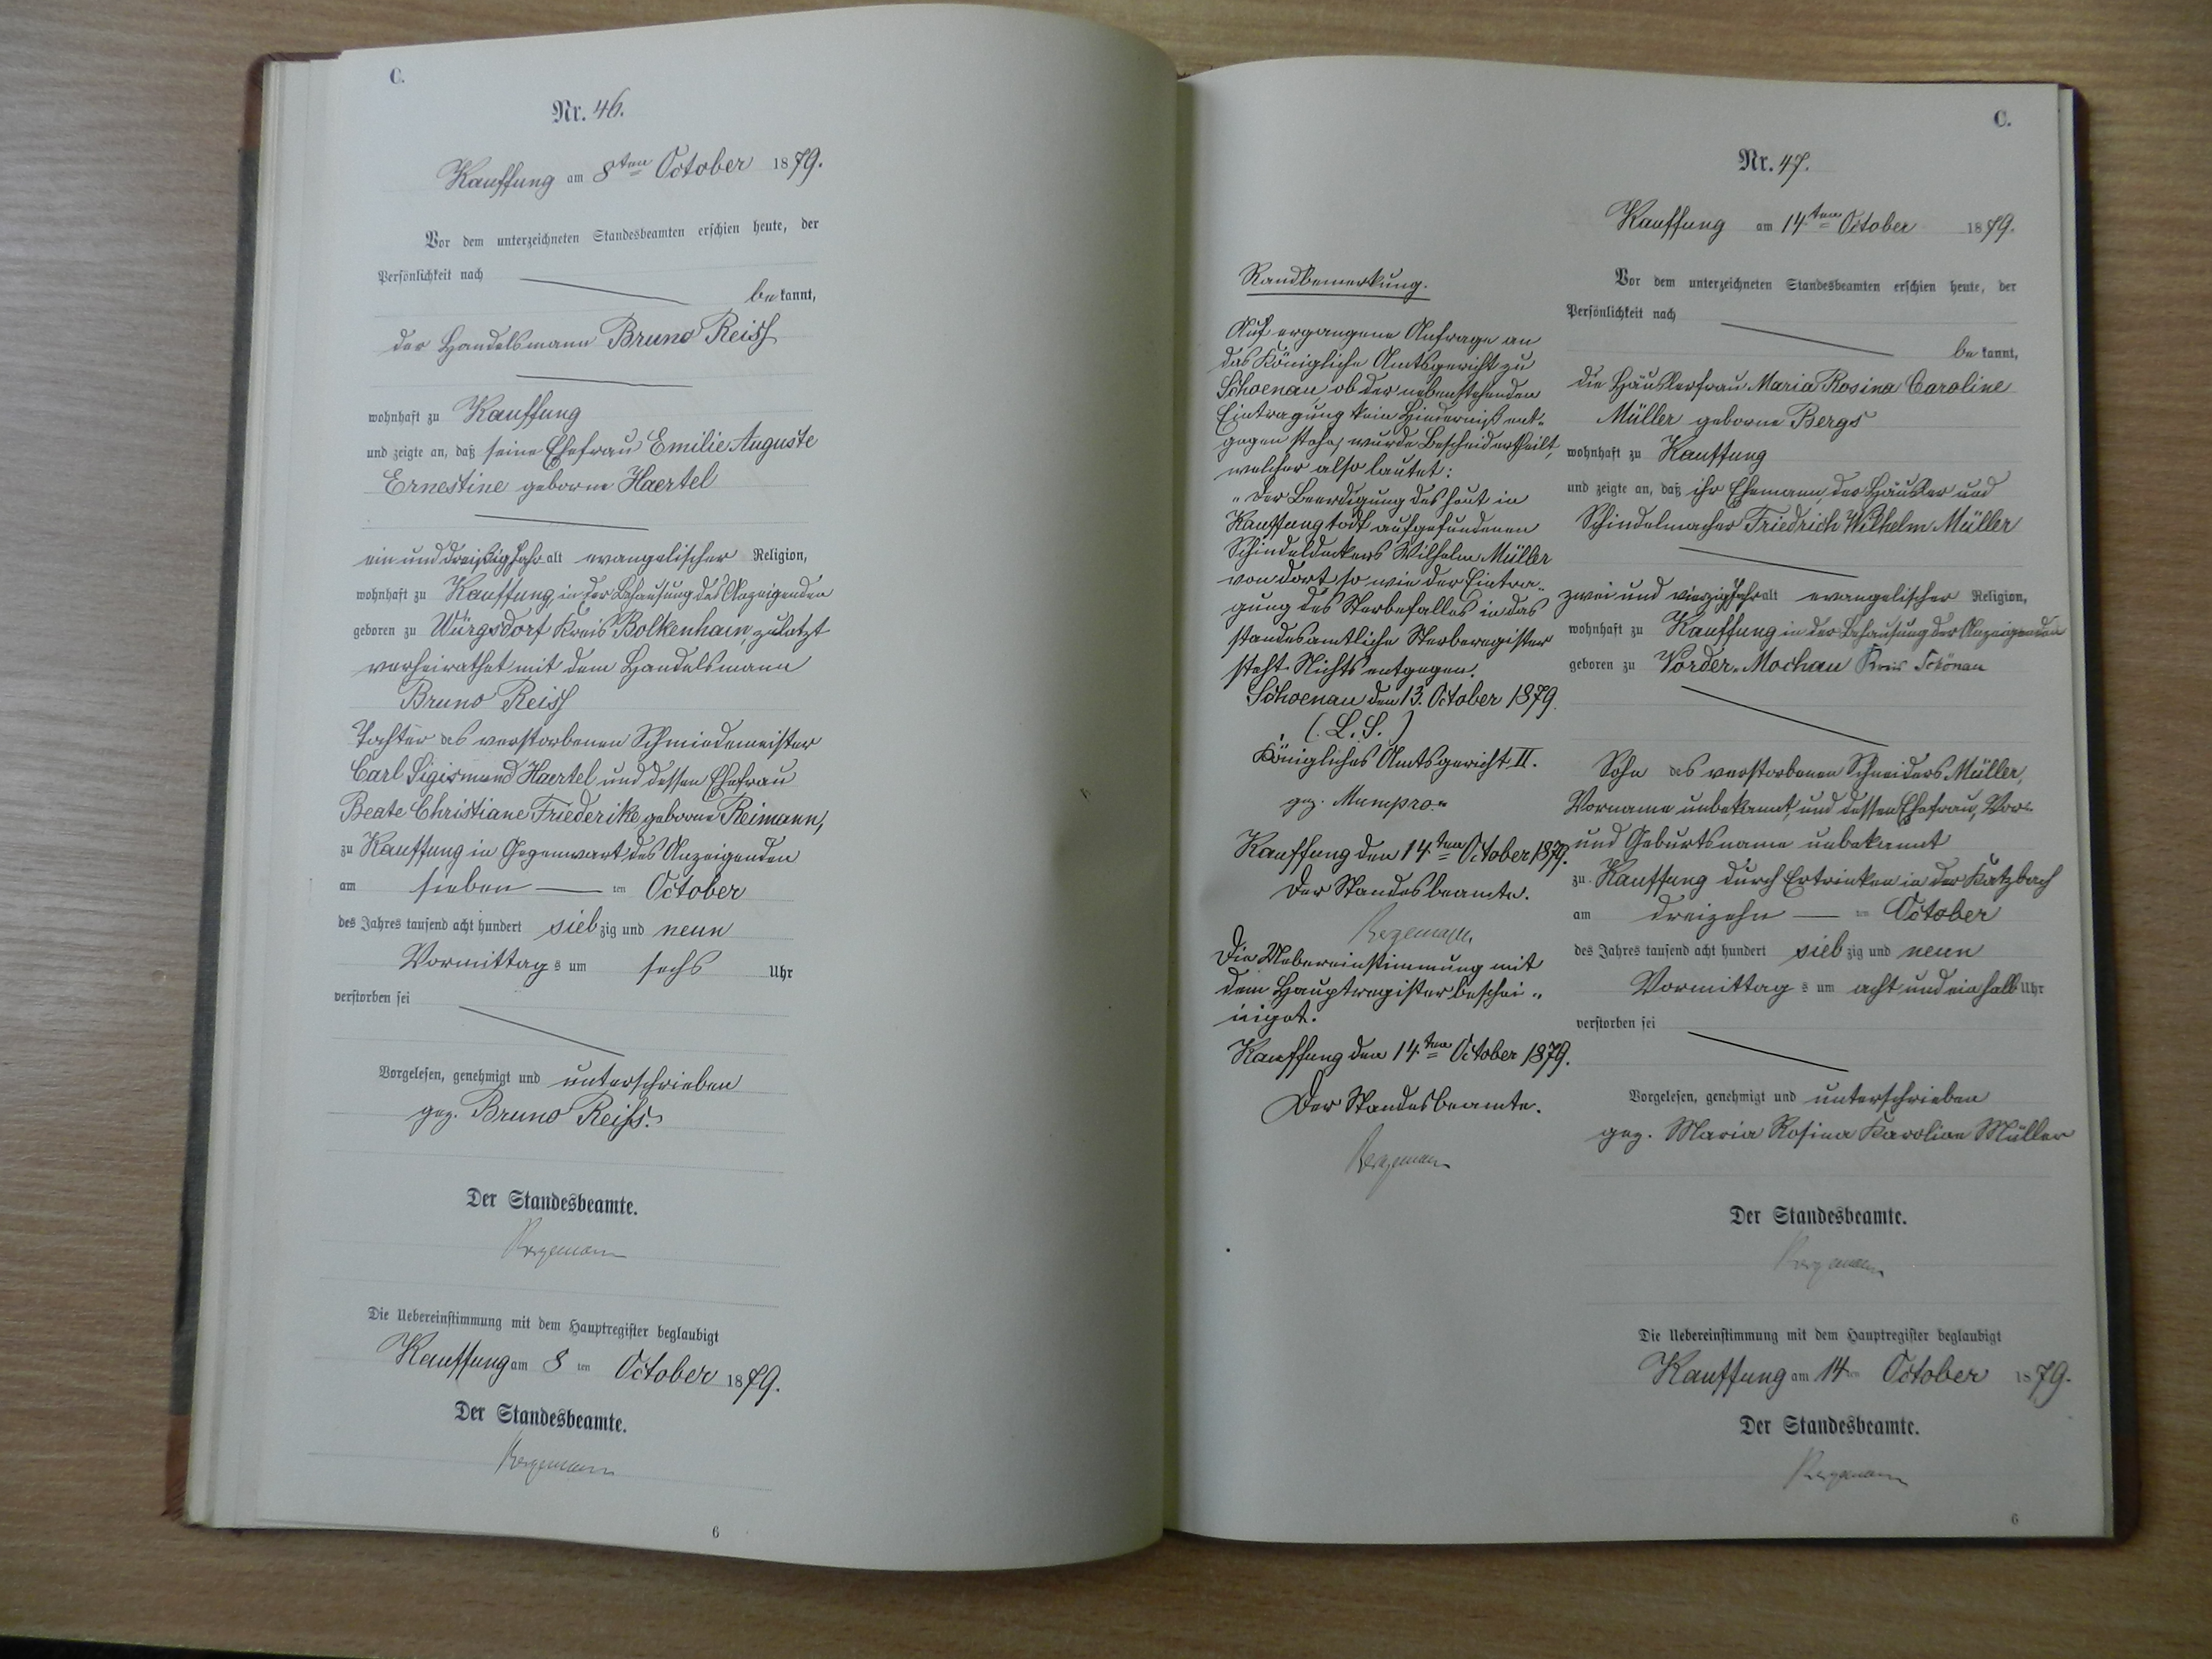 C.
Nr. 46.
Kauffung am 8ten October 1879.
Vor dem unterzeichneten Standesbeamten erschien heute, der
Persönlichkeit nach
bekannt,
der Handelsmann Bruno Reiss
wohnhaft zu Kauffung
und zeigte an, daß seine Ehefrau Emilie Auguste
Ernestine geborne Haertel
ein und dreißig Jahr alt evangelischer Religion,
wohnhaft zu Kauffung, in der Behausung des Anzeigenden
geboren zu Würgsdorf Kreis Bolkenhain, zuletzt
verheirathet mit dem Handelsmann
Bruno Reiss
Tochter des verstorbenen Schmiedemeister
Carl Sigismund Haertel und dessen Ehefrau
Beate Christiane Friederike geborne Reimann,
zu Kauffung in Gegenwart des Anzeigenden
am sieben ten October
des Jahres tausend acht hundert siebzig und neun
Vormittags um sechs Uhr
verstorben sei
Vorgelesen, genehmigt und unterschrieben
gez. Bruno Reiss.
Der Standesbeamte.
Bergemann
Die Uebereinstimmung mit dem Hauptregister beglaubigt
Kauffung am 8 ten October 1879.
Der Standesbeamte.
Bergemann
6
C.
Nr. 47.
Kauffung am 14ten October 1879.
Vor dem unterzeichneten Standesbeamten erschien heute, der
Persönlichkeit nach
bekannt,
die Häuslerfrau Maria Rosina Caroline
Müller geborne Bergs
wohnhaft zu Kauffung
und zeigte an, daß ihr Ehemann, der Häusler und
Schindelmacher Friedrich Wilhelm Müller
zwei und vierzig Jahr alt evangelischer Religion,
wohnhaft zu Kauffung in der Behausung der Anzeigenden
geboren zu Vorder-Mochau Kreis Schönau
Sohn des verstorbenen Schneiders Müller,
Vorname unbekannt, und dessen Ehefrau, Vor-
und Geburtsname unbekannt
zu Kauffung durch Ertrinken in der Katzbach
am dreizehn ten October
des Jahres tausend acht hundert siebzig und neun
Vormittags um acht und ein halb Uhr
verstorben sei
Vorgelesen, genehmigt und unterschrieben
gez. Maria Rosina Karoline Müller
Der Standesbeamte.
Bergemann
Die Uebereinstimmung mit dem Hauptregister beglaubigt
Kauffung am 14 ten October 1879.
Der Standesbeamte.
Bergemann
6
Randbemerkung.
Auf ergangene Anfrage an
das Königliche Amtsgericht zu
Schoenau, ob der nebenstehenden
Eintragung kein Hinderniß ent-
gegen stehe, wurde Bescheid ertheilt,
welcher also lautet:
"Der Beerdigung des heut in
Kauffung todt aufgefundenen
Schindeldeckers Wilhelm Müller
von dort so wie der Eintra-
gung des Sterbefalles in das
standesamtliche Sterberegister
steht Nichts entgegen.
Schoenau den 13. October 1879.
(L. S.)
Königliches Amtsgericht II.
gez.
Kauffung den 14ten October 1879.
Der Standesbeamte.
Bergemann
Die Uebereinstimmung mit
dem Hauptregister beschei-
niget.
Kauffung den 14ten October 1879.
Der Standesbeamte.
Bergemann